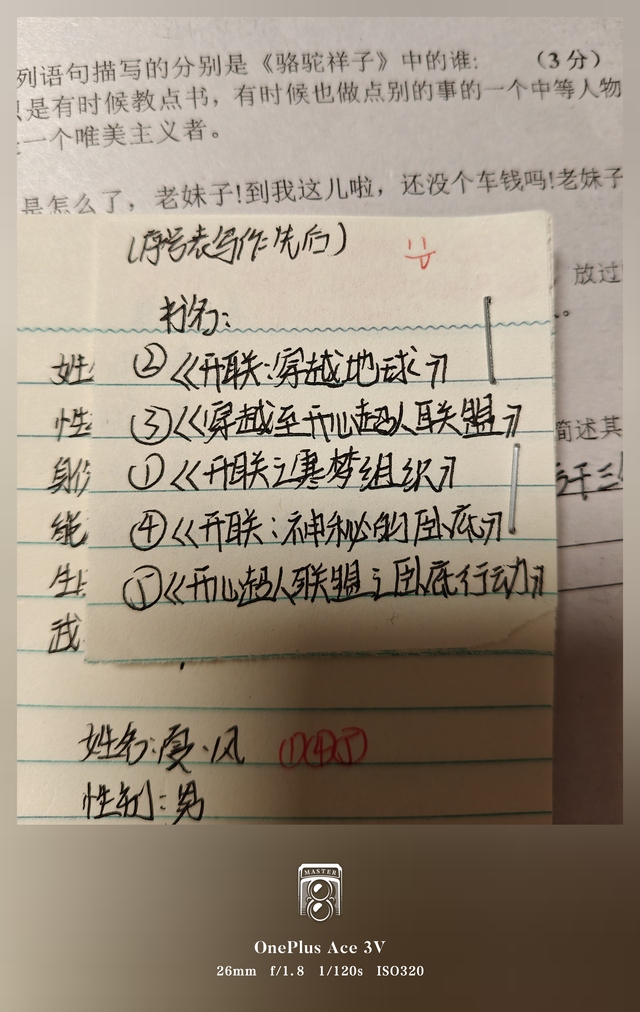 列语句描写的分别是《骆驼祥子》中的谁: (3分)
只是有时候教点书，有时候也做点别的事的一个中等人物
一个唯美主义者。
是怎么了，老妹子!到我这儿啦，还没个车钱吗!老妹子
(序号表写作先后)
放过
书名:
②《开联:穿越地球》
③《穿越至开心超人联盟》
简述其
①《开联之寒梦组织》
④《开联:神秘的卧底》
⑤《开心超人联盟之卧底行动》
姓
性
身份
绝
生
武
姓名:夏·风 ①④⑤
性别:男
MASTER
OnePlus Ace 3V
26mm f/1.8 1/120s ISO320